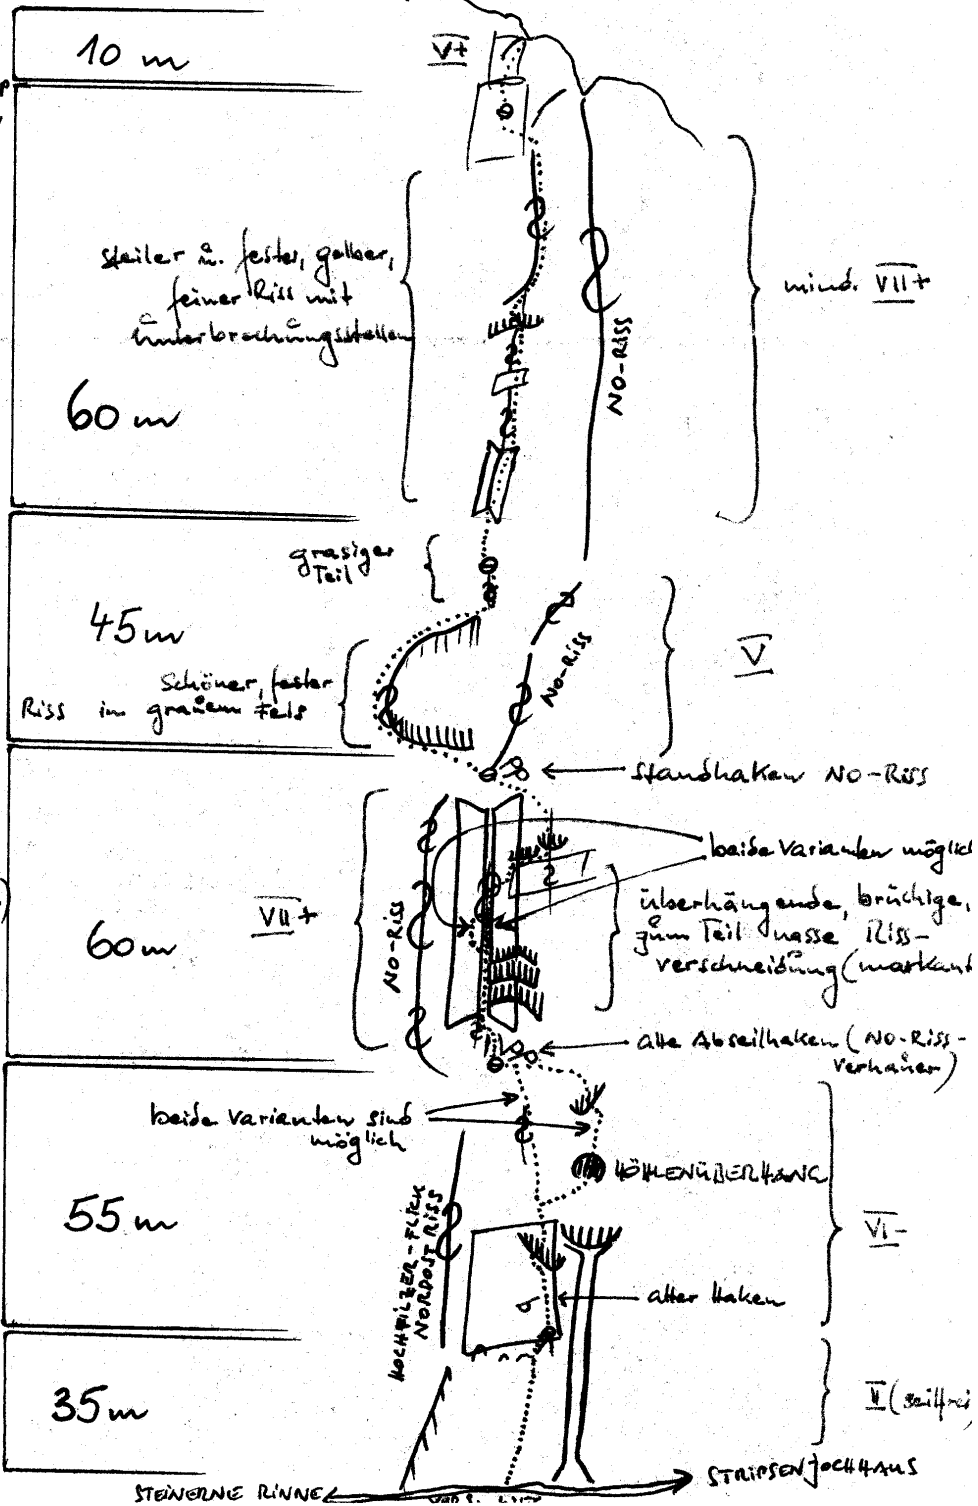 10 m
V+
steiler u. fester, gelber,
feiner Riss mit
Unterbrechungsstellen
60 m
mind. VII+
NO-RISS
grasiger
Teil
45 m
Schöner, fester
Riss im grauem Fels
NO-RISS
V
Standhaken NO-RISS
beide Varianten möglich
VII+
NO-RISS
überhängende, brüchige,
zum Teil nasse Riss-
verschneidung (markant
60 m
alte Abseilhaken (NO-RISS-
Verhauer)
beide Varianten sind
möglich
HÖHLENÜBERHANG
55 m
HOCHFILZER-FLICK
NORDOSTRISS
VI-
alter Haken
35 m
II (seilfrei
STRIPSENJOCHHAUS
STEINERNE RINNE